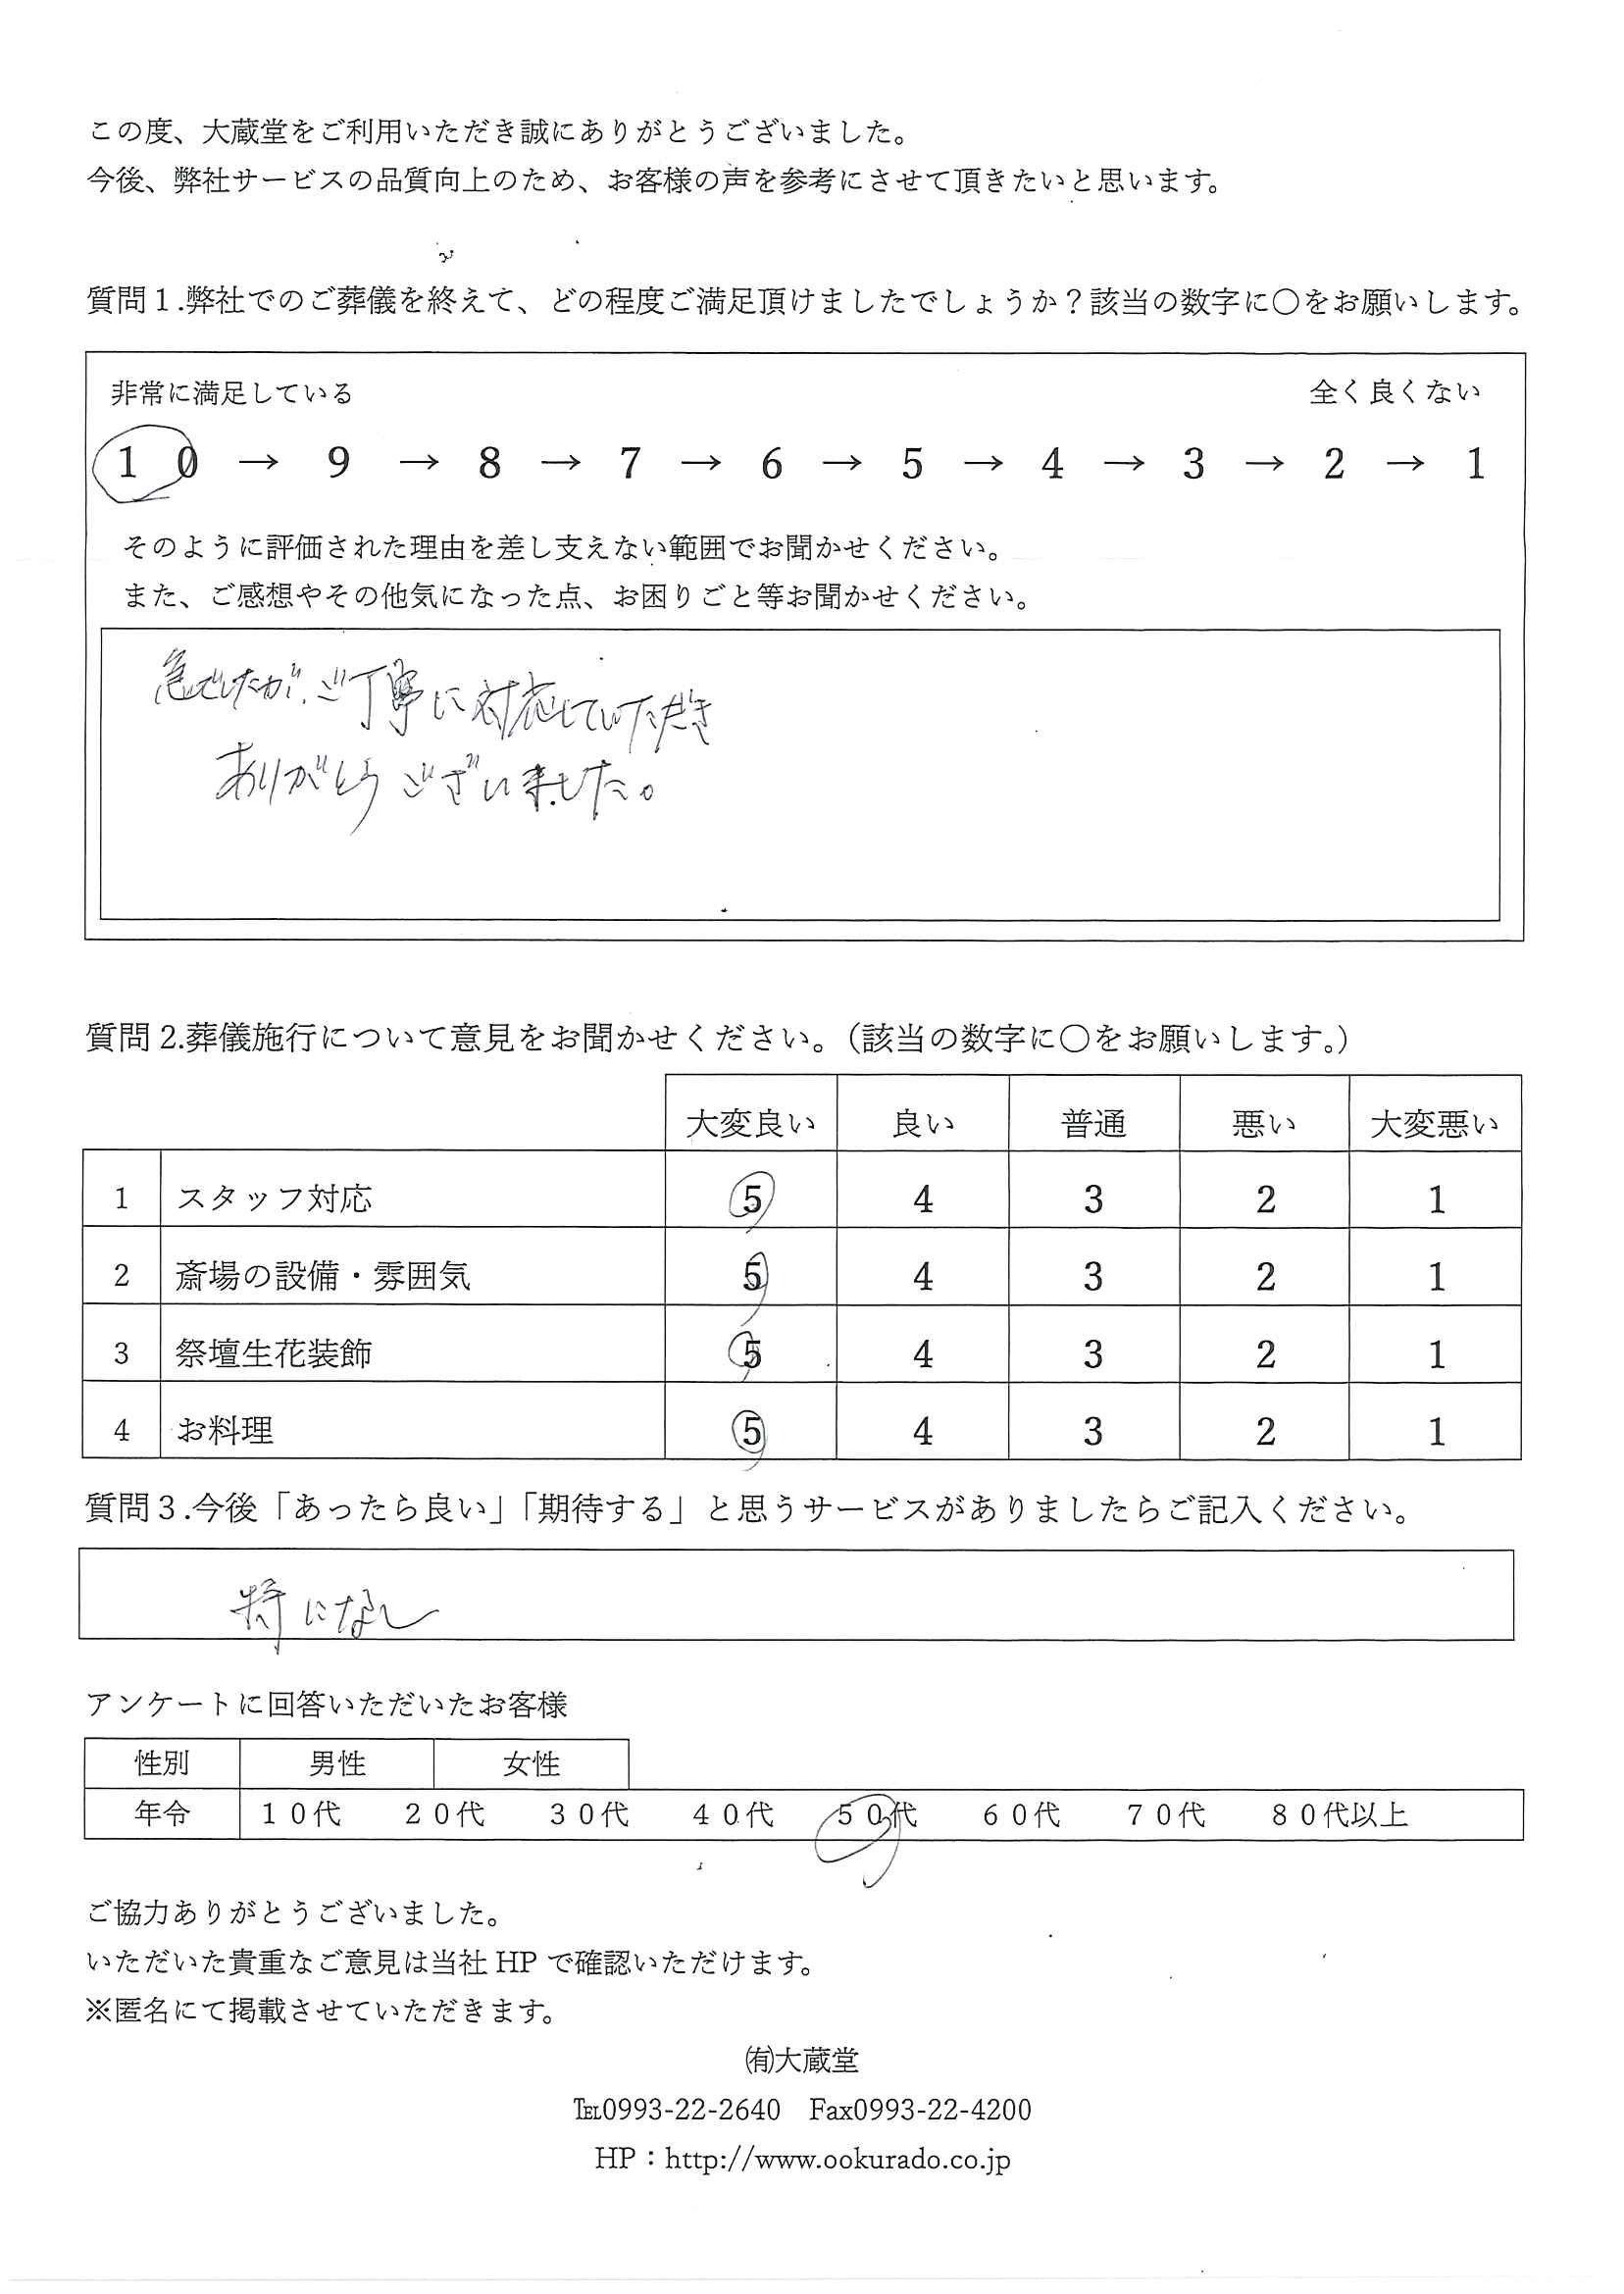 この度、大蔵堂をご利用いただき誠にありがとうございました。
今後、弊社サービスの品質向上のため、お客様の声を参考にさせて頂きたいと思います。
質問１.弊社でのご葬儀を終えて、どの程度ご満足頂けましたでしょうか？該当の数字に〇をお願いします。
非常に満足している 全く良くない
１０ → ９ → ８ → ７ → ６ → ５ → ４ → ３ → ２ → １
そのように評価された理由を差し支えない範囲でお聞かせください。
また、ご感想やその他気になった点、お困りごと等お聞かせください。
急でしたが、ご丁寧に対応していただき
ありがとうございました。
質問 2.葬儀施行について意見をお聞かせください。（該当の数字に〇をお願いします。）
大変良い 良い 普通 悪い 大変悪い
1 スタッフ対応 5 4 3 2 1
2 斎場の設備・雰囲気 5 4 3 2 1
3 祭壇生花装飾 5 4 3 2 1
4 お料理 5 4 3 2 1
質問３.今後「あったら良い」「期待する」と思うサービスがありましたらご記入ください。
特になし
アンケートに回答いただいたお客様
性別 男性 女性
年令 １０代 ２０代 ３０代 ４０代 ５０代 ６０代 ７０代 ８０代以上
ご協力ありがとうございました。
いただいた貴重なご意見は当社 HP で確認いただけます。
※匿名にて掲載させていただきます。
㈲大蔵堂
℡0993-22-2640 Fax0993-22-4200
HP：http://www.ookurado.co.jp